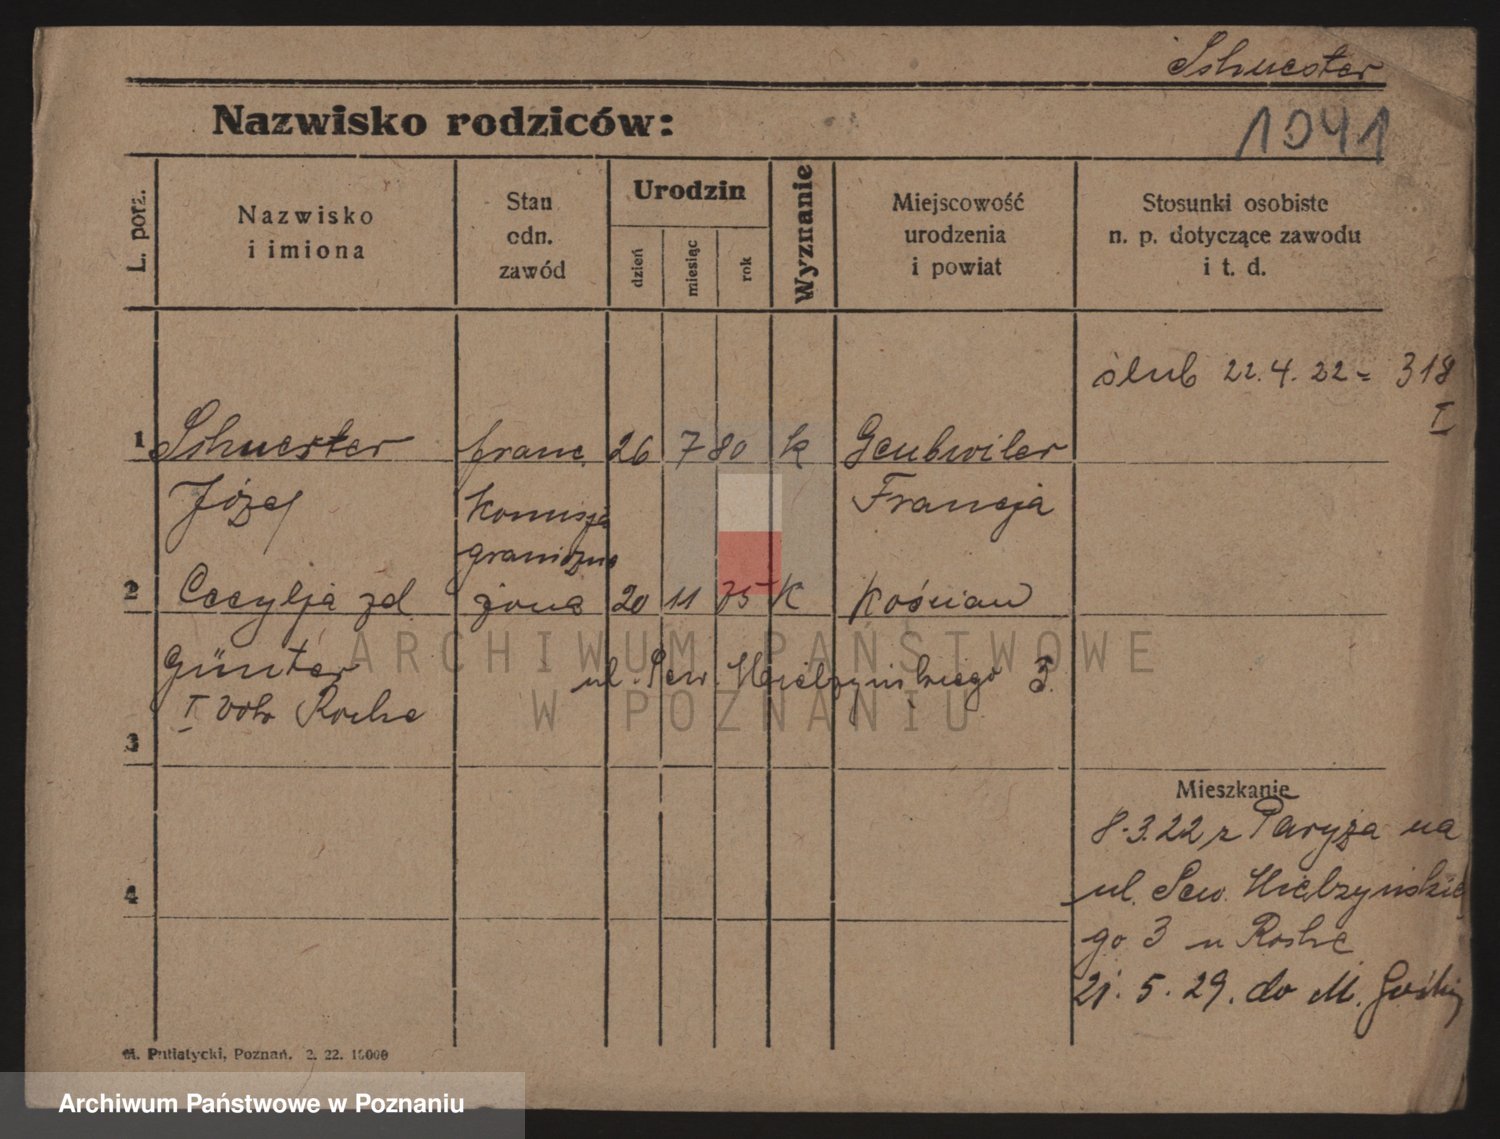 Schuester
Nazwisko rodziców:
1041
L. porz.
Nazwisko
i imiona
Stan
odn.
zawód
Urodzin
dzień
miesiąc
rok
Wyznanie
Miejscowość
urodzenia
i powiat
Stosunki osobiste
n. p. dotyczące zawodu
i t. d.
ślub 22.4.22 = 318
I
1 Schuester franc. 26 7 80 k Geubwiler
Józef Komisja Francja
graniczna
2 Cecylja zd żona 20 11 75 K Kościan
Günter ul. Sew. Mielżyńskiego 3.
I voto Roche
3
Mieszkanie
8.3.22 z Paryża na
4 ul. Sew. Mielżyńskie
go 3 u Roche
21.5.29. do M. Goślin
M. Putiatycki, Poznań. 2. 22. 10000
ARCHIWUM PAŃSTWOWE
W POZNANIU
Archiwum Państwowe w Poznaniu